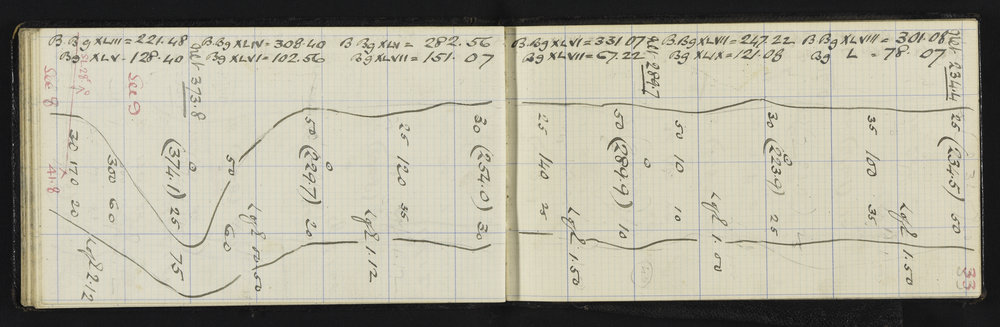 B.Bg XLIII = 221.48 B.Bg XLIV = 308.40 B Bg XLV = 282.56
Bg XLV = 128.40 Bg XLVI = 102.56 Bg XLVII = 151.07
373.8
See 8
See 9.
A1.8
30 170 20
300 60
(374.1) 0 25 75
50 60
Lgf2 2.12
Lgf2 10.50
50 (229.7) 0 20
Lgf2 1.12
25 120 35
30 (254.0) 30
B.Bg XLVI = 331.07 B.Bg XLVII = 247.22 B Bg XLVIII = 301.08
Bg XLVIII = 67.22 Bg XLIX = 121.08 Bg L = 78.07
289.7
234.4
25 140 25
Lgf2 1.50
50 (289.9) 0 10
50 10 10
Lgf2 1.00
30 (223.9) 0 25
35 100 35
Lgf2 1.50
25 (234.5) 50
33